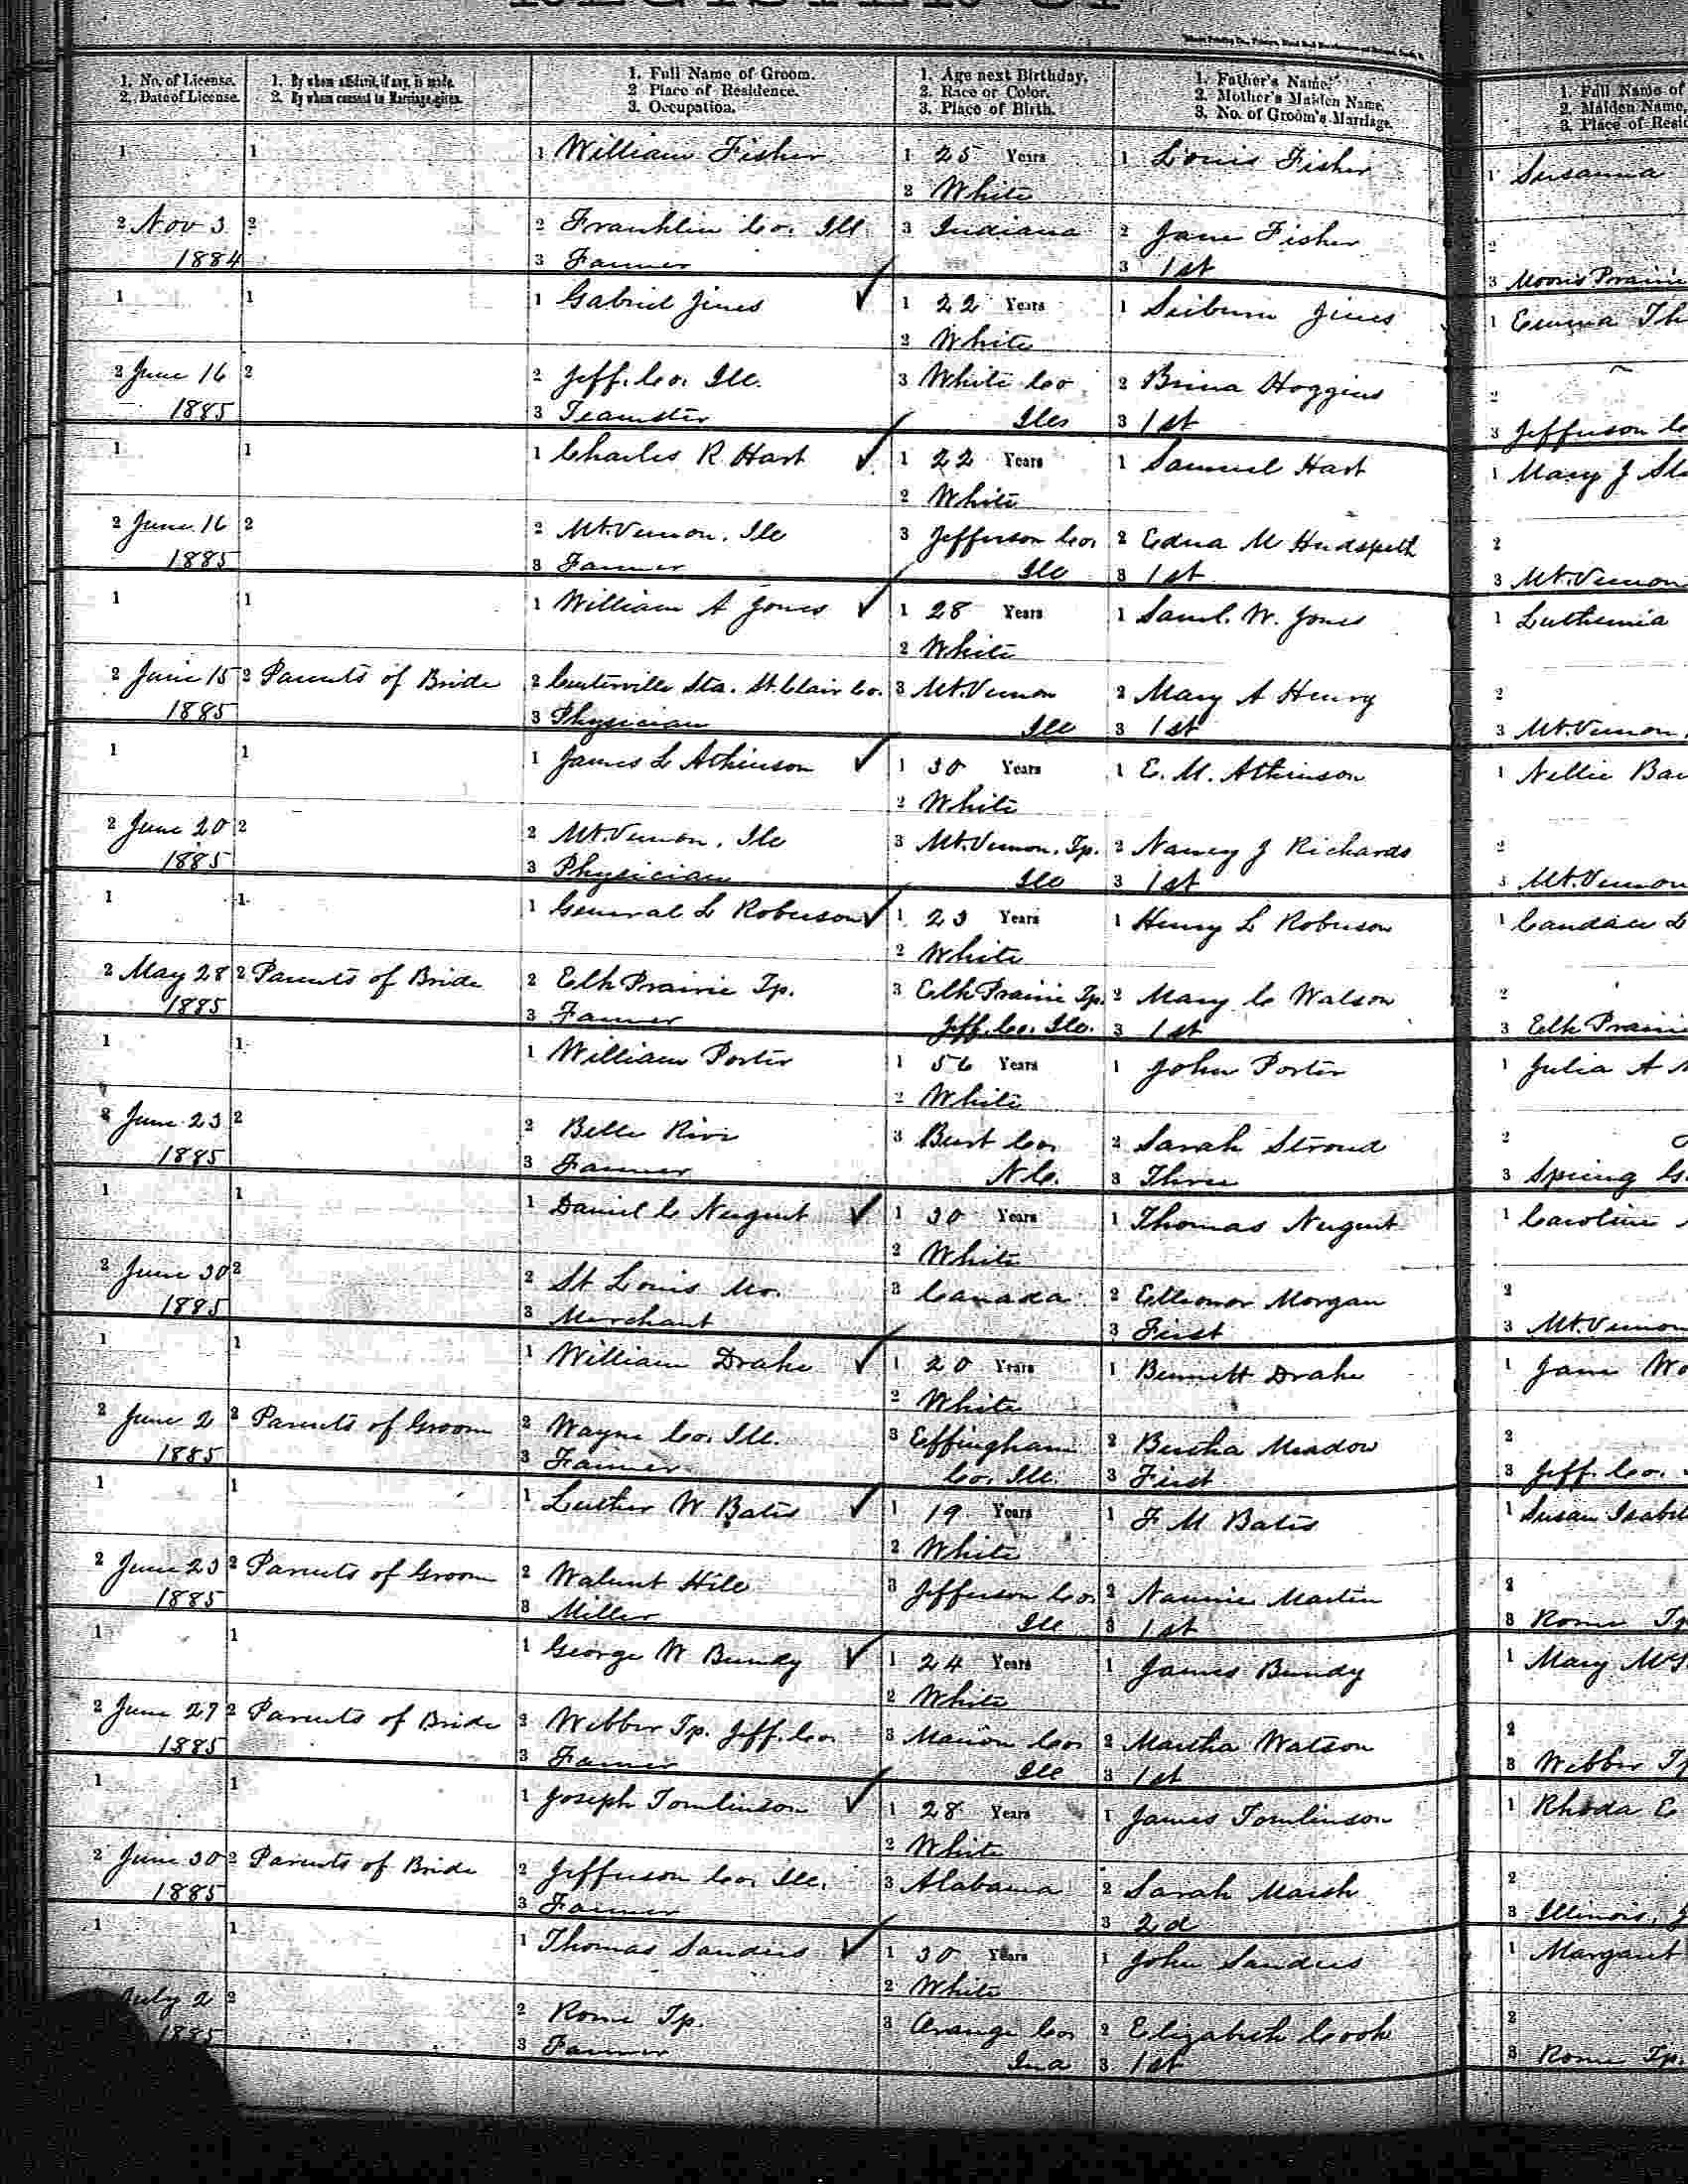 REGISTER OF
1. No. of License. 1. By whom affidavit, if any, is made. 1. Full Name of Groom. 1. Age next Birthday. 1. Father's Name. 1. Full Name of
2. Date of License. 2. By whom consent to Marriage given. 2 Place of Residence. 2. Race or Color. 2. Mother's Maiden Name. 2. Maiden Name,
3. Occupation. 3. Place of Birth. 3. No. of Groom's Marriage. 3. Place of Resid
1 1 1 William Fisher 1 25 Years 1 Louis Fisher 1 Susanna
2 White
2 Nov 3 2 2 Franklin Co. Ill 3 Indiana 2 Jane Fisher 2
1884 3 Farmer 3 1st 3 Moores Prairie
1 1 1 Gabriel Jines ✓ 1 22 Years 1 Seiburn Jines 1 Emma Th
2 White
2 June 16 2 2 Jeff. Co. Ill. 3 White Co 2 Brina Hoggins 2
1885 3 Teamster Ills 3 1st 3 Jefferson Co
1 1 1 Charles R Hart ✓ 1 22 Years 1 Samuel Hart 1 Mary J
2 White
2 June 16 2 2 Mt. Vernon. Ill 3 Jefferson Co. 2 Edna M Hudspeth 2
1885 3 Farmer Ill 3 1st 3 Mt. Vernon
1 1 1 William A Jones ✓ 1 28 Years 1 Saml. W. Jones 1 Luthenia
2 White
2 June 15 2 Parents of Bride 2 Centerville Sta. St. Clair Co. 3 Mt. Vernon 2 Mary A Henry 2
1885 3 Physician Ill 3 1st 3 Mt. Vernon,
1 1 1 James L Atkinson ✓ 1 30 Years 1 E. M. Atkinson 1 Nellie
2 White
2 June 20 2 2 Mt. Vernon, Ill 3 Mt. Vernon, Tp. 2 Nancy J Richards 2
1885 3 Physician Ill 3 1st 3 Mt. Vernon
1 1 1 General L Roberson ✓ 1 23 Years 1 Henry L Roberson 1 Candace L
2 White
2 May 28 2 Parents of Bride 2 Elk Prairie Tp. 3 Elk Prairie Tp. 2 Mary C Watson 2
1885 3 Farmer Jeff. Co. Ill. 3 1st 3 Elk Prairie
1 1 1 William Porter 1 56 Years 1 John Porter 1 Julia A
2 White
2 June 23 2 2 Belle Rive 3 Burt Co. 2 Sarah Stroud 2
1885 3 Farmer N C. 3 Three 3 Spring G.
1 1 1 Daniel C Nugent ✓ 1 30 Years 1 Thomas Nugent 1 Caroline
2 White
2 June 30 2 2 St Louis Mo. 3 Canada 2 Elleonor Morgan 2
1885 3 Merchant 3 First 3 Mt. Vernon
1 1 1 William Drake ✓ 1 20 Years 1 Bennett Drake 1 Jane Wo
2 White
2 June 2 2 Parents of Groom 2 Wayne Co. Ill. 3 Effingham 2 Bertha Meadow 2
1885 3 Farmer Co. Ill. 3 First 3 Jeff. Co.
1 1 1 Luther W Bates ✓ 1 19 Years 1 F M Bates 1 Susan Isabel
2 White
2 June 23 2 Parents of Groom 2 Walnut Hill 3 Jefferson Co. 2 Nannie Martin 2
1885 3 Miller Ill 3 1st 3 Rome Tp
1 1 1 George W Bundy ✓ 1 24 Years 1 James Bundy 1 Mary
2 White
2 June 27 2 Parents of Bride 2 Webber Tp. Jeff. Co. 3 Marion Co. 2 Martha Watson 2
1885 3 Farmer Ill 3 1st 3 Webber Tp
1 1 1 Joseph Tomlinson ✓ 1 28 Years 1 James Tomlinson 1 Rhoda E
2 White
2 June 30 2 Parents of Bride 2 Jefferson Co. Ill. 3 Alabama 2 Sarah Marsh 2
1885 3 Farmer 3 2d 3 Illinois,
1 1 1 Thomas Sanders ✓ 1 30 Years 1 John Sanders 1 Margaret
2 White
July 2 2 2 Rome Tp. 3 Orange Co. 2 Elizabeth Cook 2
1885 3 Farmer Ina 3 1st 3 Rome Tp.